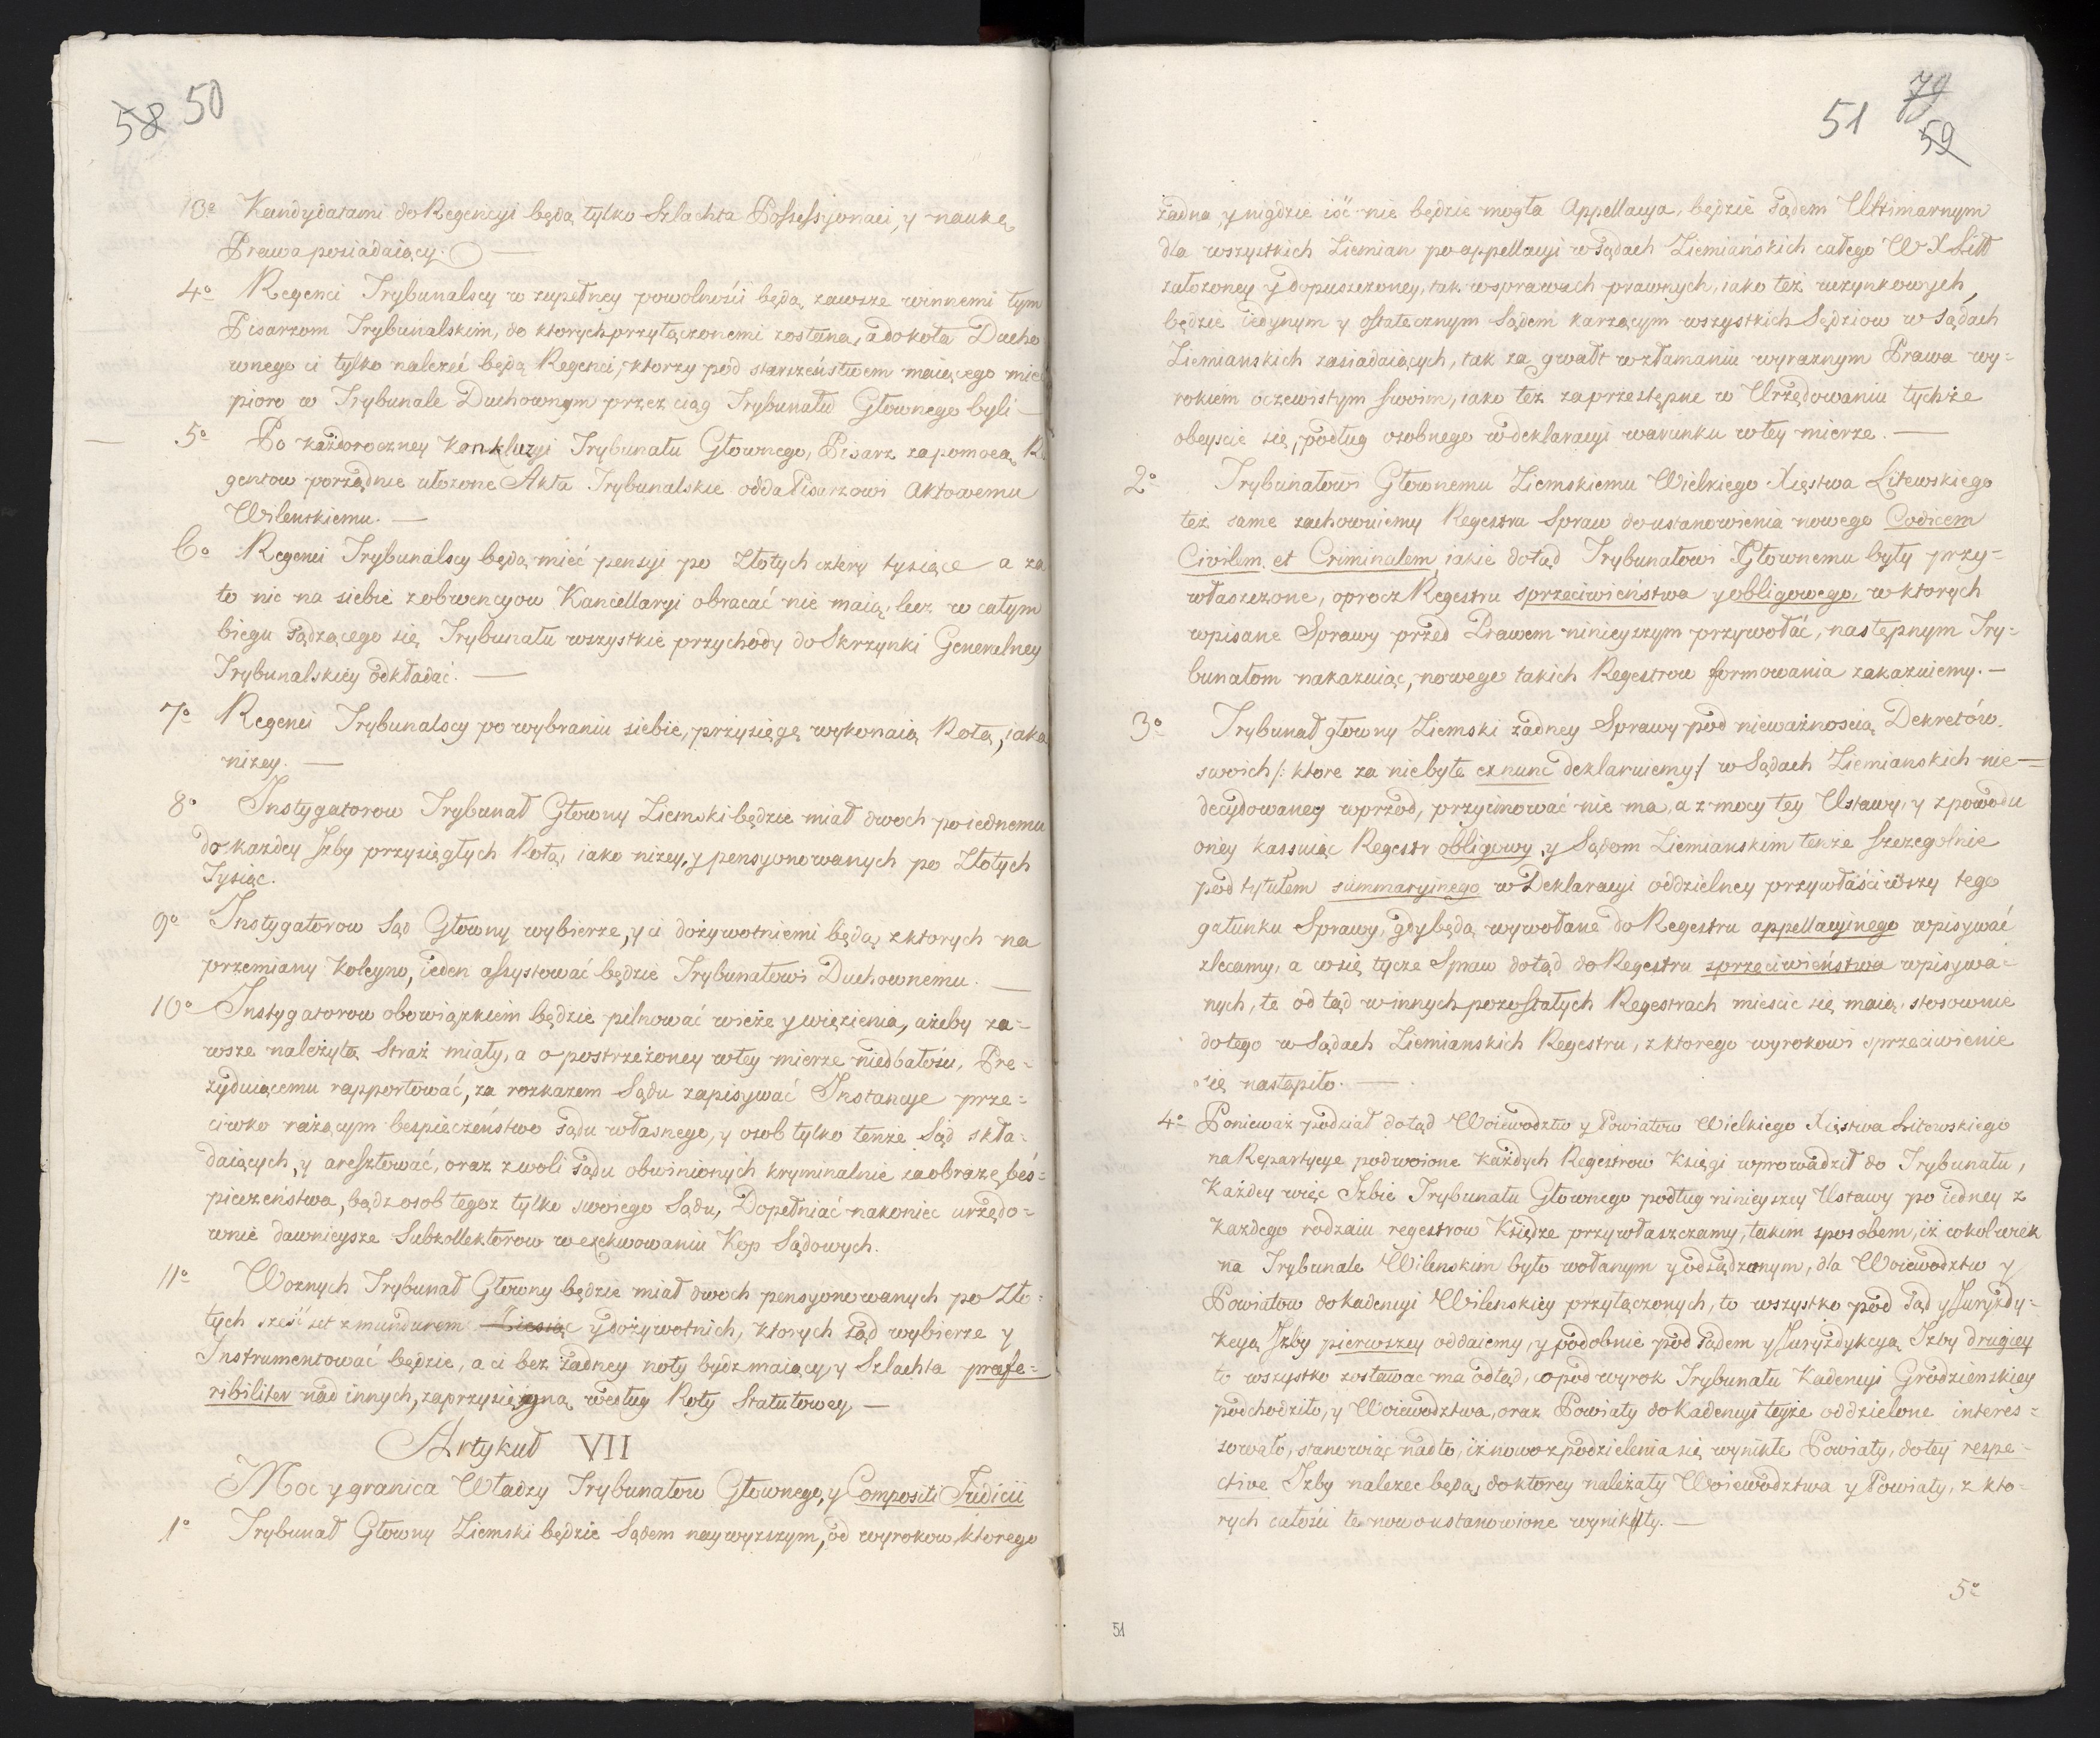 58 50
13º Kandydatami do Regencyi będą tylko Szlachta Possessyonaci, y naukę
Prawa posiadaiący. —
4º Regenci Trybunalscy w zupełney powolności będą zawsze winnemi tym
Pisarzom Trybunalskim, do ktorych przyłączonemi zostaną, a do koła Ducho
wnego ci tylko należeć będą Regenci, ktorzy pod starszeństwem maiącego mieć
pioro w Trybunale Duchownym przez ciąg Trybunału Głownego byli —
5º Po każdoroczney konkluzyi Trybunału Głownego, Pisarz za pomocą Re
gentow porządnie ułożone Akta Trybunalskie odda Pisarzowi Aktowemu
Wilenskiemu. —
6º Regenci Trybunalscy będą mieć pensyi po Złotych cztery tysiące a za
to nic na siebie z obwencyow Kancellaryi obracać nie maią, lecz w całym
biegu sądzącego się Trybunału wszystkie przychody do Skrzynki Generalney
Trybunalskiey odkładać. —
7º Regenci Trybunalscy po wybraniu siebie, przysięgę wykonaią Rotą, iaka
niżey. —
8º Instygatorow Trybunał Głowny Ziemski będzie miał dwoch po iednemu
do każdey Izby przysięgłych Rotą iako niżey, y pensyonowanych po Złotych
Tysiąc.
9º Instygatorow Sąd Głowny wybierze, y ci dożywotniemi będą, z ktorych na
przemiany koleyno, ieden assystować będzie Trybunałowi Duchownemu. —
10º Instygatorow obowiązkiem będzie pilnować wieże y więzienia, ażeby za=
wsze należytą Straż miały, a o postrzeżoney w tey mierze niedbałości, Pre=
zyduiącemu rapportować, za rozkazem Sądu zapisywać Instancye prze=
ciwko rażącym bespieczeństwo sądu własnego, y osob tylko tenże Sąd skła=
daiących, y aresztować, oraz z woli sądu obwinionych kryminalnie za obrazę bes=
pieczeństwa, bądz osob tegoz tylko swoiego Sądu, Dopełniać nakoniec urzędo=
wnie dawnieysze Subkollektorow w exekwowaniu Kop Sądowych.
11º Woznych Trybunał Głowny będzie miał dwoch pensyonowanych po Zło=
tych sześć set z mundurem y dożywotnich, ktorych sąd wybierze y
Instrumentować będzie, a ci bez żadney noty bydz maiący, y Szlachta prefe=
ribiliter nad innych, zaprzysięgną według Roty Statutowey —
Artykuł VII
Moc y granica Władzy Trybunałow Głownego, y Compositi Judicii
1º Trybunał Głowny Ziemski będzie Sądem naywyższym, od wyrokow ktorego
51 79
59
żadna, y nigdzie iść nie będzie mogła Appellacya, będzie sądem Ultimarnym
dla wszystkich Ziemian po appellacyi w Sądach Ziemiańskich całego W X Litt
założoney y dopuszczoney, tak w sprawach prawnych, iako też uczynkowych,
będzie iedynym y ostatecznym Sądem karzącym wszystkich Sędziow w Sądach
Ziemianskich zasiadaiących, tak za gwałt w złamaniu wyraznym Prawa wy=
rokiem oczewistym swoim, iako też za przestępne w Urzędowaniu tychże
obeyscie się, podług osobnego w deklaracyi warunku w tey mierze. —
2º Trybunałowi Głownemu Ziemskiemu Wielkiego Xięstwa Litewskiego
też same zachowuiemy Regestra Spraw do ustanowienia nowego Codicem
Civilem et Criminalem iakie dotąd Trybunałowi Głownemu były przy=
właszczone, oprocz Regestru sprzeciwieństwa y obligowego, w ktorych
wpisane Sprawy przed Prawem ninieyszym przywołać, następnym Try=
bunałom nakazuiąc, nowego takich Regestrow formowania zakazuiemy. —
3º Trybunał głowny Ziemski żadney Sprawy pod nieważnoscią Dekretów
swoich /: ktore za niebyłe ex nunc deklaruiemy :/ w Sądach Ziemianskich nie=
decydowaney wprzod, przyimować nie ma, a z mocy tey Ustawy, y z powodu
oney kassuiąc Regestr obligowy, y Sądom Ziemianskim tenże szczegolnie
pod tytułem summaryinego w Deklaracyi oddzielney przywłaściwszy tego
gatunku Sprawy, gdy będą wywołane do Regestru appellacyinego wpisywać
zlecamy, a co się tycze Spraw dotąd do Regestru sprzeciwieństwa wpisywa=
nych, te od tąd w innych pozostałych Regestrach mieścić się maią, stosownie
do tego w Sądach Ziemianskich Regestru, z ktorego wyrokowi sprzeciwienie
się nastąpiło. —
4º Ponieważ podział dotąd Woiewodztw y Powiatow Wielkiego Xięstwa Litewskiego
na Repartycye podwoione każdych Regestrow Księgi wprowadził do Trybunału,
Każdey więc Izbie Trybunału Głownego podług ninieyszey Ustawy po iedney z
każdego rodzaiu regestrow Księdze przywłaszczamy, takim sposobem, iż cokolwiek
na Trybunale Wilenskim było wołanym y odsądzonym, dla Woiewodztw y
Powiatow do kadencyi Wilenskiey przyłączonych, to wszystko pod sąd y Juryzdy=
kcyą Izby pierwszey oddaiemy, y podobnie pod sądem y Juryzdykcyą Izby drugiey
to wszystko zostawac ma odtąd, co pod wyrok Trybunału Kadencyi Grodzienskiey
podchodziło, y Woiewodztwa, oraz Powiaty do Kadencyi teyże oddzielone interes=
sowało, stanowiąc nadto, iż nowo z podzielenia się wynikłe Powiaty, do tey respe=
ctive Izby należec będą, do ktorey należały Woiewodztwa y Powiaty, z kto=
rych całości te nowo ustanowione wynikły. —
5º
51